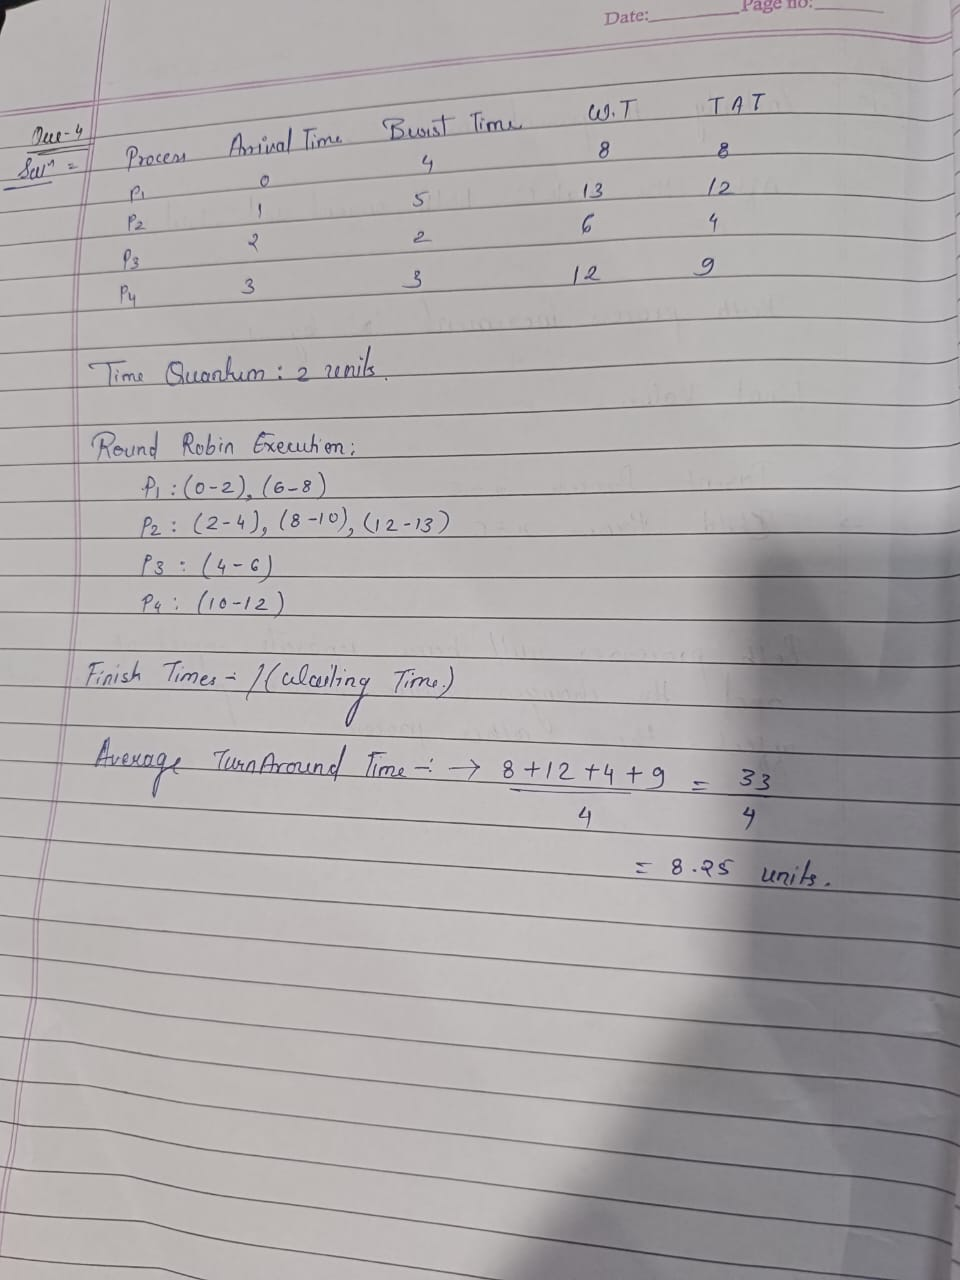 Date: Page no:
Que-4
Solⁿ = Process Arrival Time Burst Time W.T TAT
P1 0 4 8 8
P2 1 5 13 12
P3 2 2 6 4
P4 3 3 12 9
Time Quantum : 2 units.
Round Robin Execution:
P1 : (0-2), (6-8)
P2 : (2-4), (8-10), (12-13)
P3 : (4-6)
P4 : (10-12)
Finish Times - / (Waiting Time.)
Average TurnAround Time -: → 8+12+4+9 = 33
4 4
= 8.25 units.